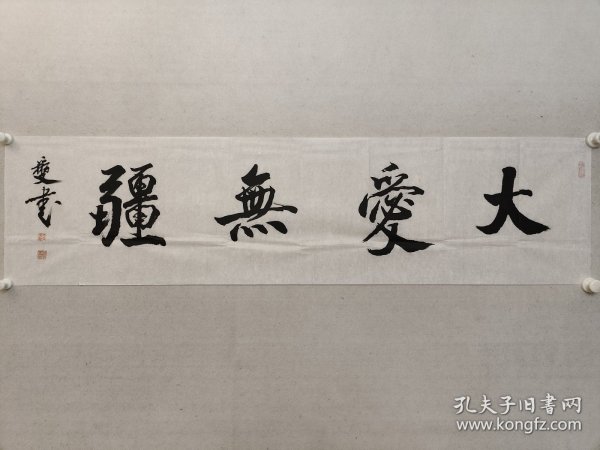 大愛無疆
書
孔夫子旧書网
www.kongfz.com